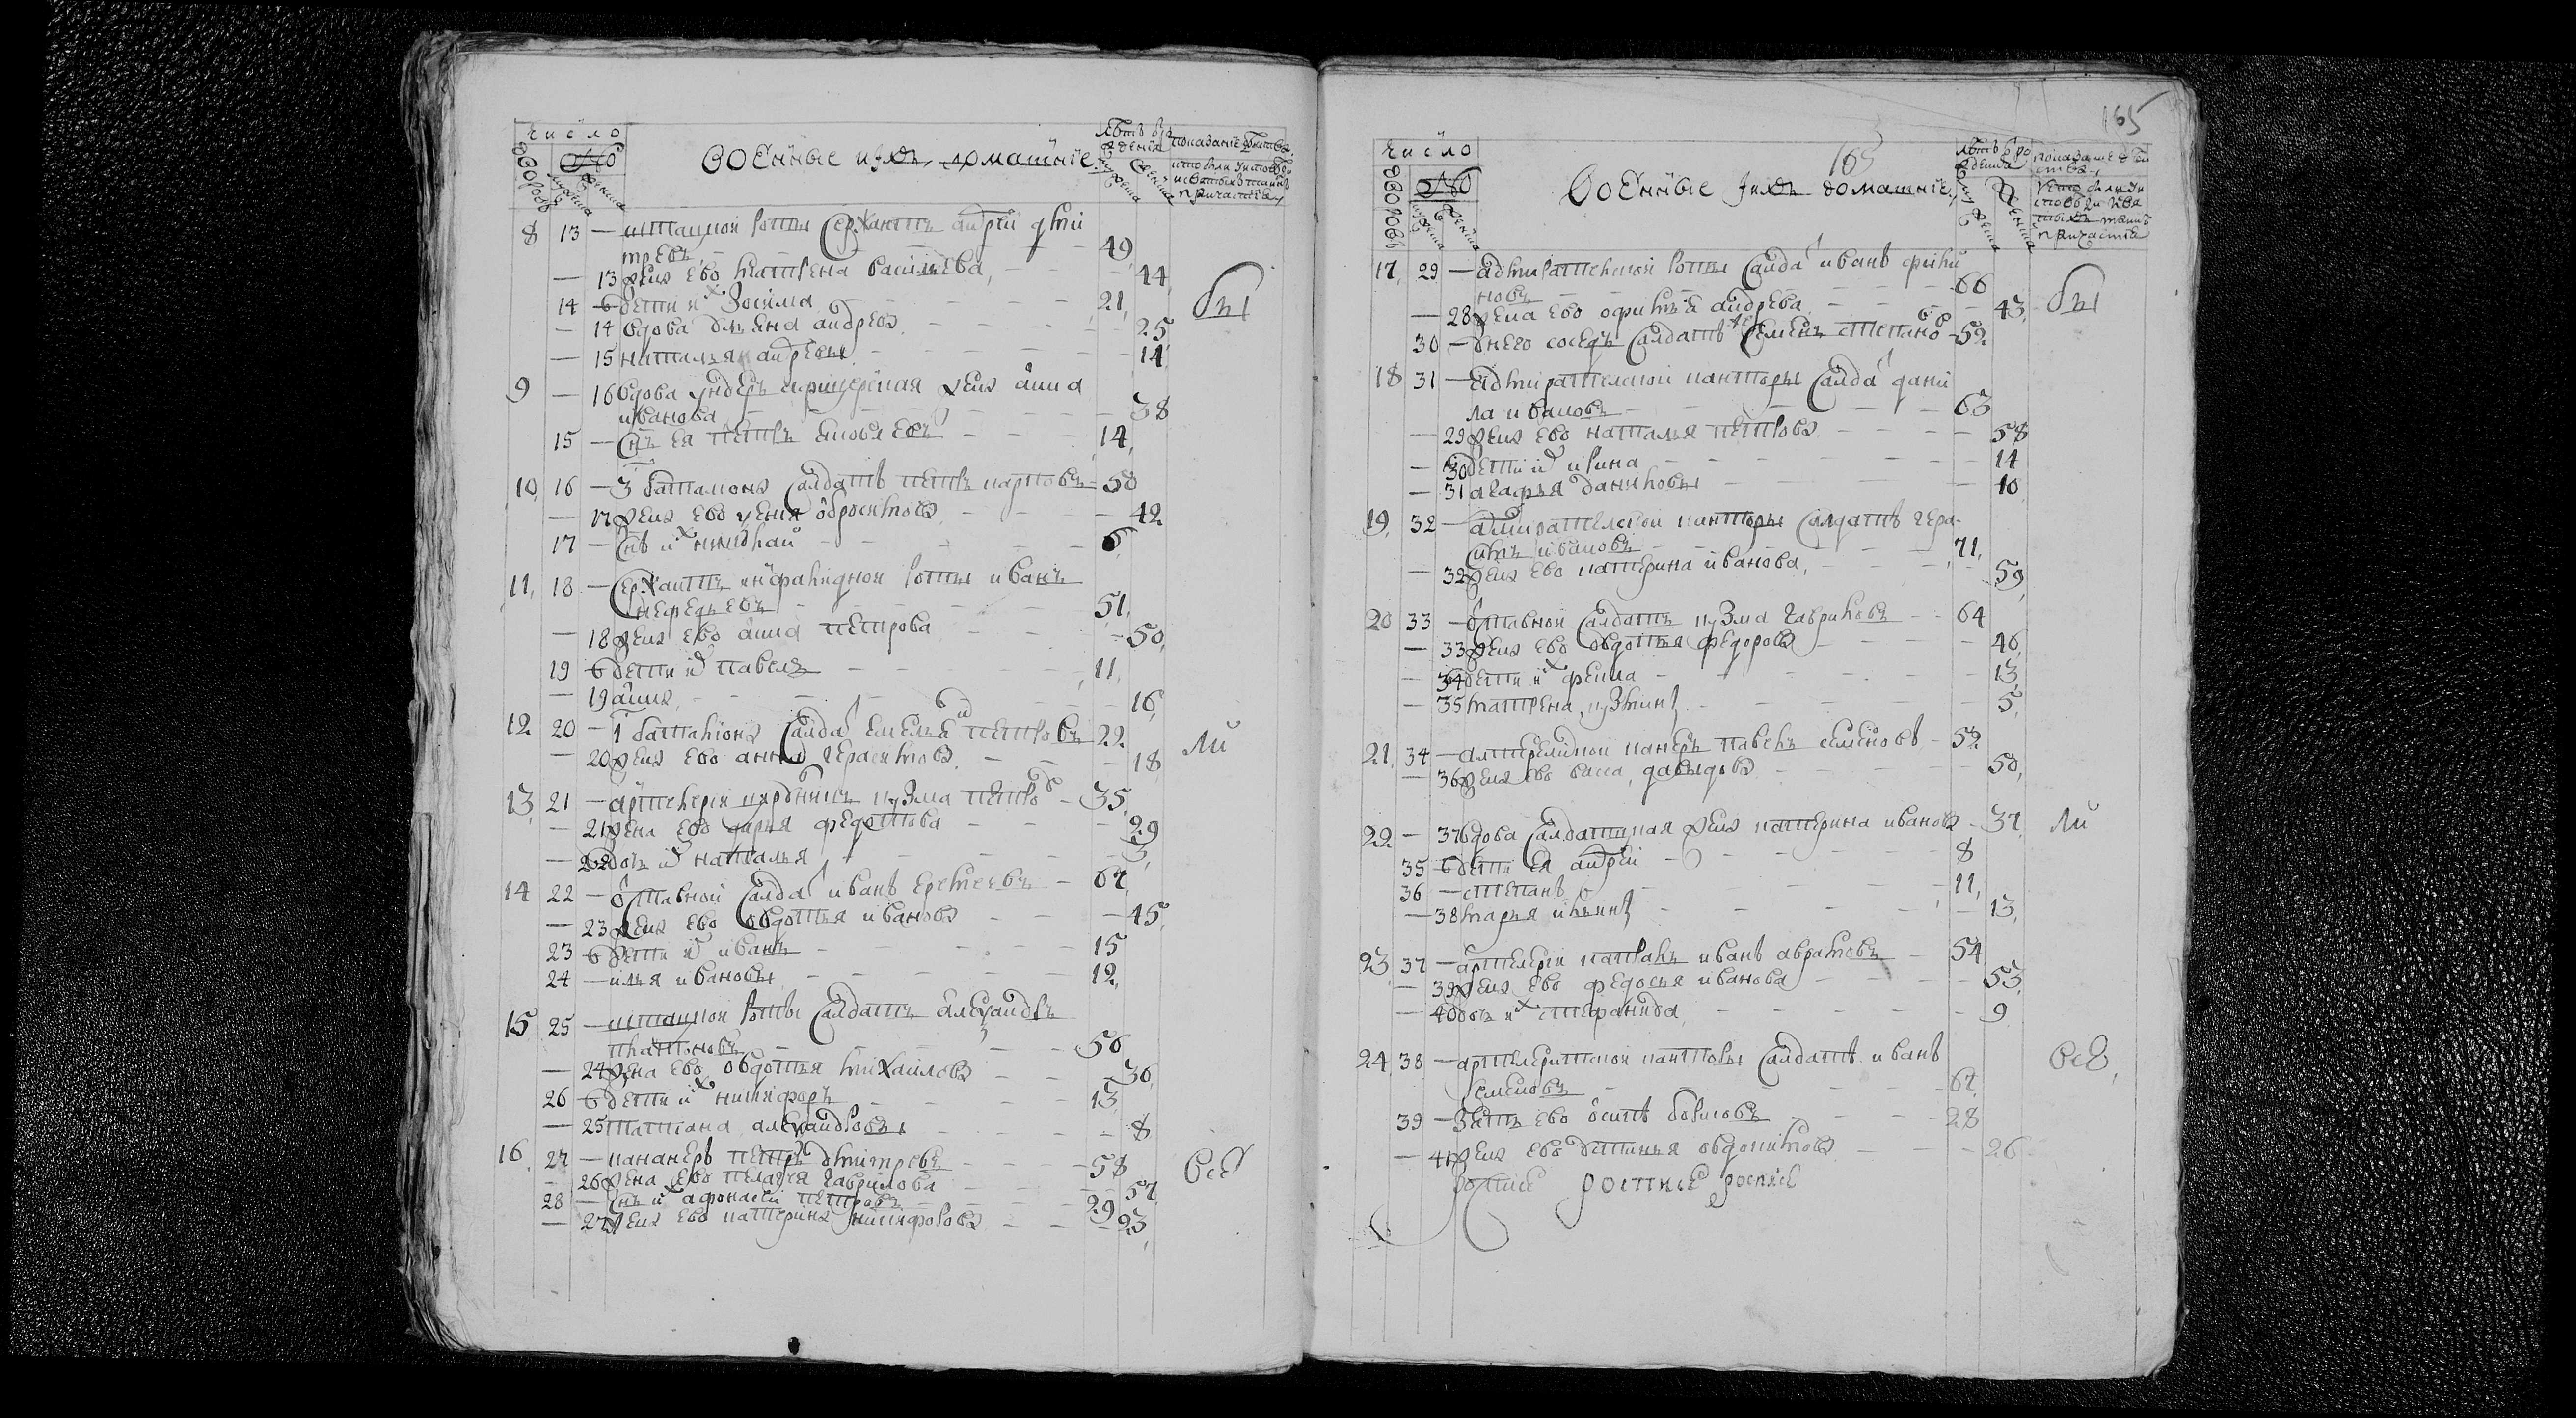 число
дворовъ
людей
мужеска
женска
военные и ихъ домашние
лѣтъ отъ рождения
мужеска
женска
показание дѣйства
кто были у исповѣди
и святыхъ таинъ
причастия
8 13 — штатной роты сержантъ андрей дми
тревъ 49
— 13 жена ево матрена васильева 44
14 — дети их зосима 21 бы
— 14 вдова андреева 25
— 15 наталья андреевы 14
9 — 16 вдова ундеръ афицерская жена анна
иванова 38
15 — снъ ея петръ яковлевъ 14
10 16 — 3 баталиона салдатъ петръ карповъ 50
— 17 жена ево ксения абросимова 42
17 — снъ их николай 6
11 18 — сержантъ инвалидной роты иванъ
мефедьевъ 51
— 18 жена ево анна петрова 50
19 — дети их павелъ 11
— 19 анна 16
12 20 — 1 баталиона салда емельян петровъ 22 ли
— 20 жена ево анна герасимова 18
13 21 — артилерии кузма петров 35
— 21 жена ево дарья федотова 29
— 22 дочь их наталья 3
14 22 — отставной салда иванъ еремеевъ 67
— 23 жена ево овдотья иванова 45
23 — дети их иванъ 15
24 — илья ивановы 12
15 25 — штатной роты салдатъ александръ
платоновъ 56
— 24 жена ево овдотья михаилова 36
26 — дети их никифоръ 13
— 25 татиана александровы 8
16 27 — кананеръ петръ дмитревъ 58 всѣ
— 26 жена ево пелагея гаврилова 57
28 — снъ их афонасей петровъ 29
— 27 жена ево катерина никифорова 23
165
165
число
дворовъ
людей
мужеска
женска
военные и ихъ домашние
лѣтъ от ро
ждения
мужеска
женска
показание дѣй
ства
кто были у и
споведи и свя
тыхъ таинъ
причастия
17 29 — адмиралтейской роты салда иванъ фили
новъ 66
— 28 жена ево офимья андрева 43 бы
30 — у него соседъ салдатъ семенъ степанов 52
18 31 — адмиралтейской канторы салда дани
ла ивановъ 63
— 29 жена ево наталья петрова 58
— 30 дети их ирина 14
— 31 агафья даниловы 10
19 32 — адмиралтейской канторы салдатъ гера
симъ ивановъ 71
— 32 жена ево катерина иванова 59
20 33 — отставной салдатъ кузма гавриловъ 64
— 33 жена ево овдотья федорова 46
— 34 дети их фекла 13
— 35 матрена кузмины 5
21 34 — артилерийской канеръ павелъ семеновъ 52
— 36 жена ево васа давыдова 50
22 — 37 вдова салдатская жена катерина иванова 37 ли
35 — дети ея андрей 8
36 — степанъ 11
— 38 марья ильины 13
23 37 — артилерии капралъ иванъ аврамовъ 54
— 39 жена ево федосья иванова 53
— 40 дочь их стефанида 9
24 38 — артилерийской канторы салдатъ иванъ всѣ
семеновъ 67
39 — зять ево осипъ борисовъ 28
— 41 жена ево устинья овдокимова 26
роспись роспись роспись